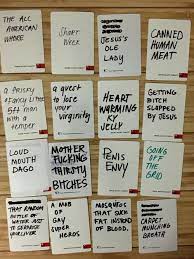 ALL
AMERICAN
WHORE
Short
Week
JESUS'S
OLE
LADY
CANNED
HUMAN
MEAT
a frisky
fancy little
5ft man
with a
temper
a quest
to lose
your
virginity
HEART
WARMING
KY
JELLY
GETTING
BITCH
SLAPPED
BY JESUS
LOUD
MOUTH
DAGO
MOTHER
FUCKING
THIRSTY
BITCHES
PENIS
ENVY
GOING
OFF THE
GRID
THAT RANDOM
BOTTLE OF
WATER JUST
TO
YOUR LIVER
A MOB
OF
GAY
SUPER
HEROS
MOSQUITOS
THAT SUCK
FAT INSTEAD
OF BLOOD.
CARPET
MUNCHING
BREATH